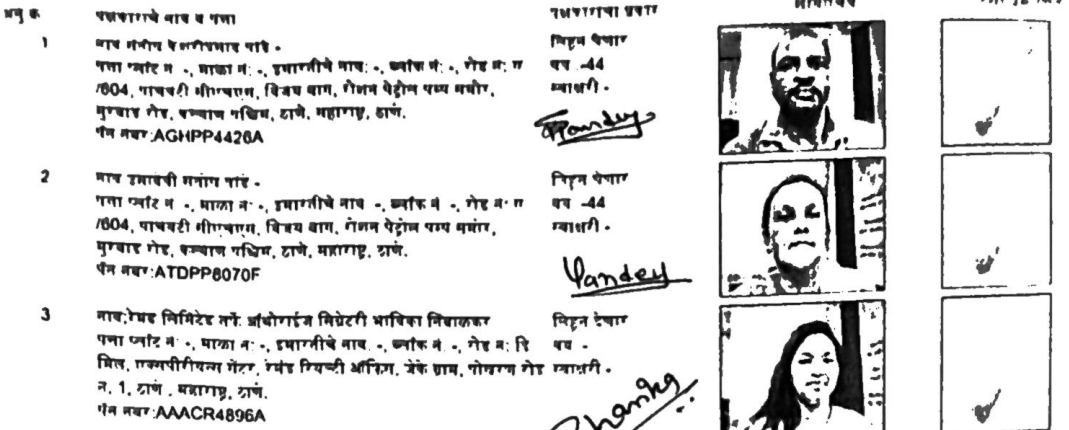 अनु क्र. पक्षकाराचे नाव व पत्ता पक्षकाराचा प्रकार छायाचित्र
1 नाव मनीष केशरीप्रसाद पांडे -
पत्ता प्लॉट नं -, माळा नं: -, इमारतीचे नाव: -, ब्लॉक नं: -, रोड नं:
/604, पाचवटी सीएचएस, विजय बाग, रोशन पेट्रोल पम्प समोर,
मुरबाड रोड, कल्याण पश्चिम, ठाणे, महाराष्ट्र, ठाणे.
पॅन नंबर:AGHPP4426A
लिहून घेणार
वय -44
स्वाक्षरी -
Pandey
2 नाव पांडे -
पत्ता प्लॉट नं -, माळा नं: -, इमारतीचे नाव -, ब्लॉक नं -, रोड नं:
/604, पाचवटी सीएचएस, विजय बाग, रोशन पेट्रोल पम्प समोर,
मुरबाड रोड, कल्याण पश्चिम, ठाणे, महाराष्ट्र, ठाणे.
पॅन नंबर:ATDPP8070F
लिहून घेणार
वय -44
स्वाक्षरी -
Pandey
3 नाव:रेमंड लिमिटेड तर्फे ऑथोराईज सिग्नेटरी भाविका निंबाळकर
पत्ता प्लॉट नं: -, माळा नं: -, इमारतीचे नाव -, ब्लॉक नं -, रोड नं: दि
मिल, एक्सपीरीयन्स सेंटर, रेमंड रियल्टी ऑफिस, जेके ग्राम, पोखरण रोड
नं, 1, ठाणे, महाराष्ट्र, ठाणे.
पॅन नंबर:AAACR4896A
लिहून देणार
वय -
स्वाक्षरी -